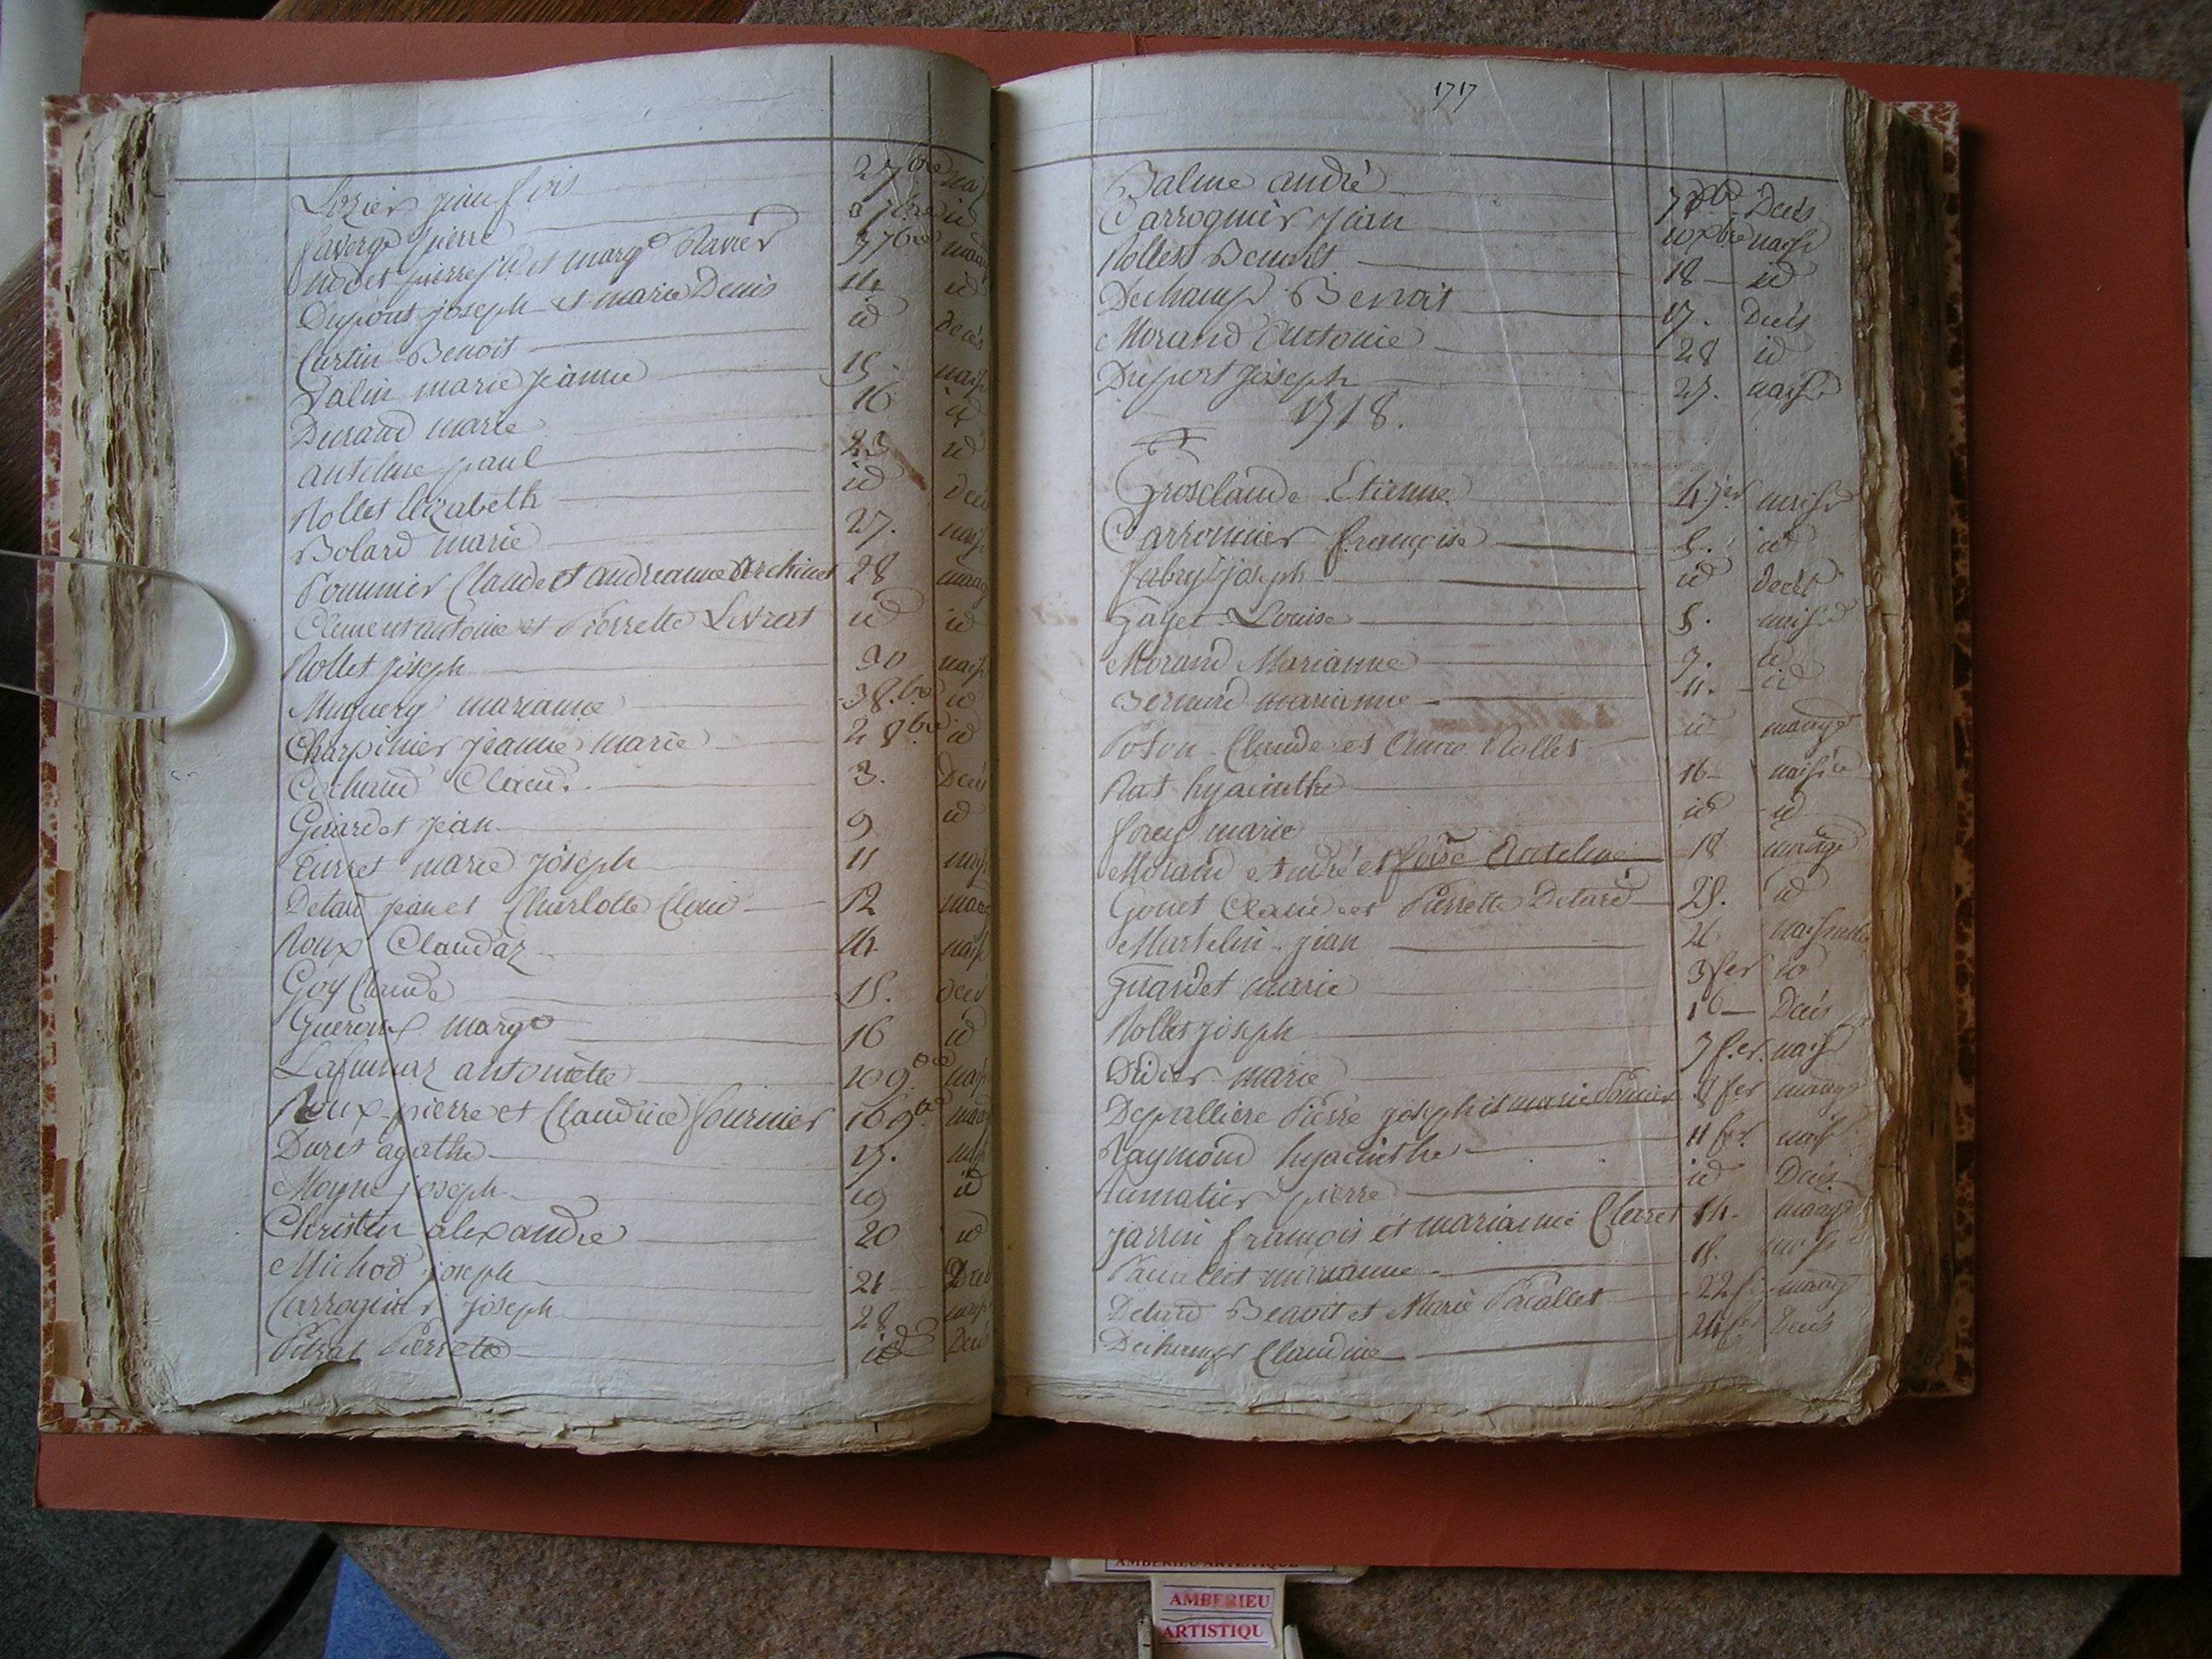 Lozier jean fois 27bre nai
faverge pierre id
et pierre et marg Ravier 7bre mariag
Dupont joseph et marie Denis 14 id
Curtin Benoit id decès
Salin marie jeanne 15 naiss
Durand marie 16 id
antelme paul 23 id
Rollet Elizabeth id dec
Bolard marie 27. naiss
Pommier Claude et andreanne Archinet 28 mariag
Clement antoine et Pierrette Livrat id id
Rollet joseph 30 naiss
Muguerg marianne 38.bre id
Charpinier jeanne marie 28bre id
Cochand Claud. 3. Decès
Girardet jean 9 id
Curret marie joseph 11 naiss
Detard jean et Charlotte 12 mariag
Roux Claudaz 14 naiss
Goy Claude 15. decè
marg 16 id
antoinette 109. naiss
Roux pierre et Claudine fournier 169. mariag
Duret agathe 17. naiss
Moyne joseph 19 id
Christin alexandre 20 id
Michod joseph 21 Dec
Carroquier joseph 28 naiss
Pitrat Pierrette id Decè
1717
Balme andré 7 Decès
Carroquier jean 10 naiss
Rollet Benoit 18 id
Dechamp Benoit 17. Decès
Morand Antoine 28 id
Duport joseph 27. naiss
1718.
Grosclaude Etienne 4 jer naiss
Carronnier françoise 5. id
fabry joseph id decès
Gayet Louise 8. naiss
Morand Marianne 9. id
Bernard marianne 11. id
Poton Claude et Anne Rollet id mariage
Rat hyacinthe 16 naiss
forey marie id id
Morand André et foise Antelme 18 mariage
Gonet Claude et Pierrette Detard 25. id
Martelin jean 21 naissance
Girardet marie 3 fer id
Rollet joseph 16 Decès
Didier marie 7 fer. naiss
Depalliere Pierre joseph et marie 8 fer mariage
Raymond hyacinthe 11 fer. naiss
pierre id Decès
jarrin françois et marianne Claret 14. mariage
marianne 18. naiss
Detard Benoit et Marie Pacallet 22 f. mariag
Dechamp Claudine 24 fer Decès
AMBERIEU ARTISTIQUE
AMBERIEU
ARTISTIQU